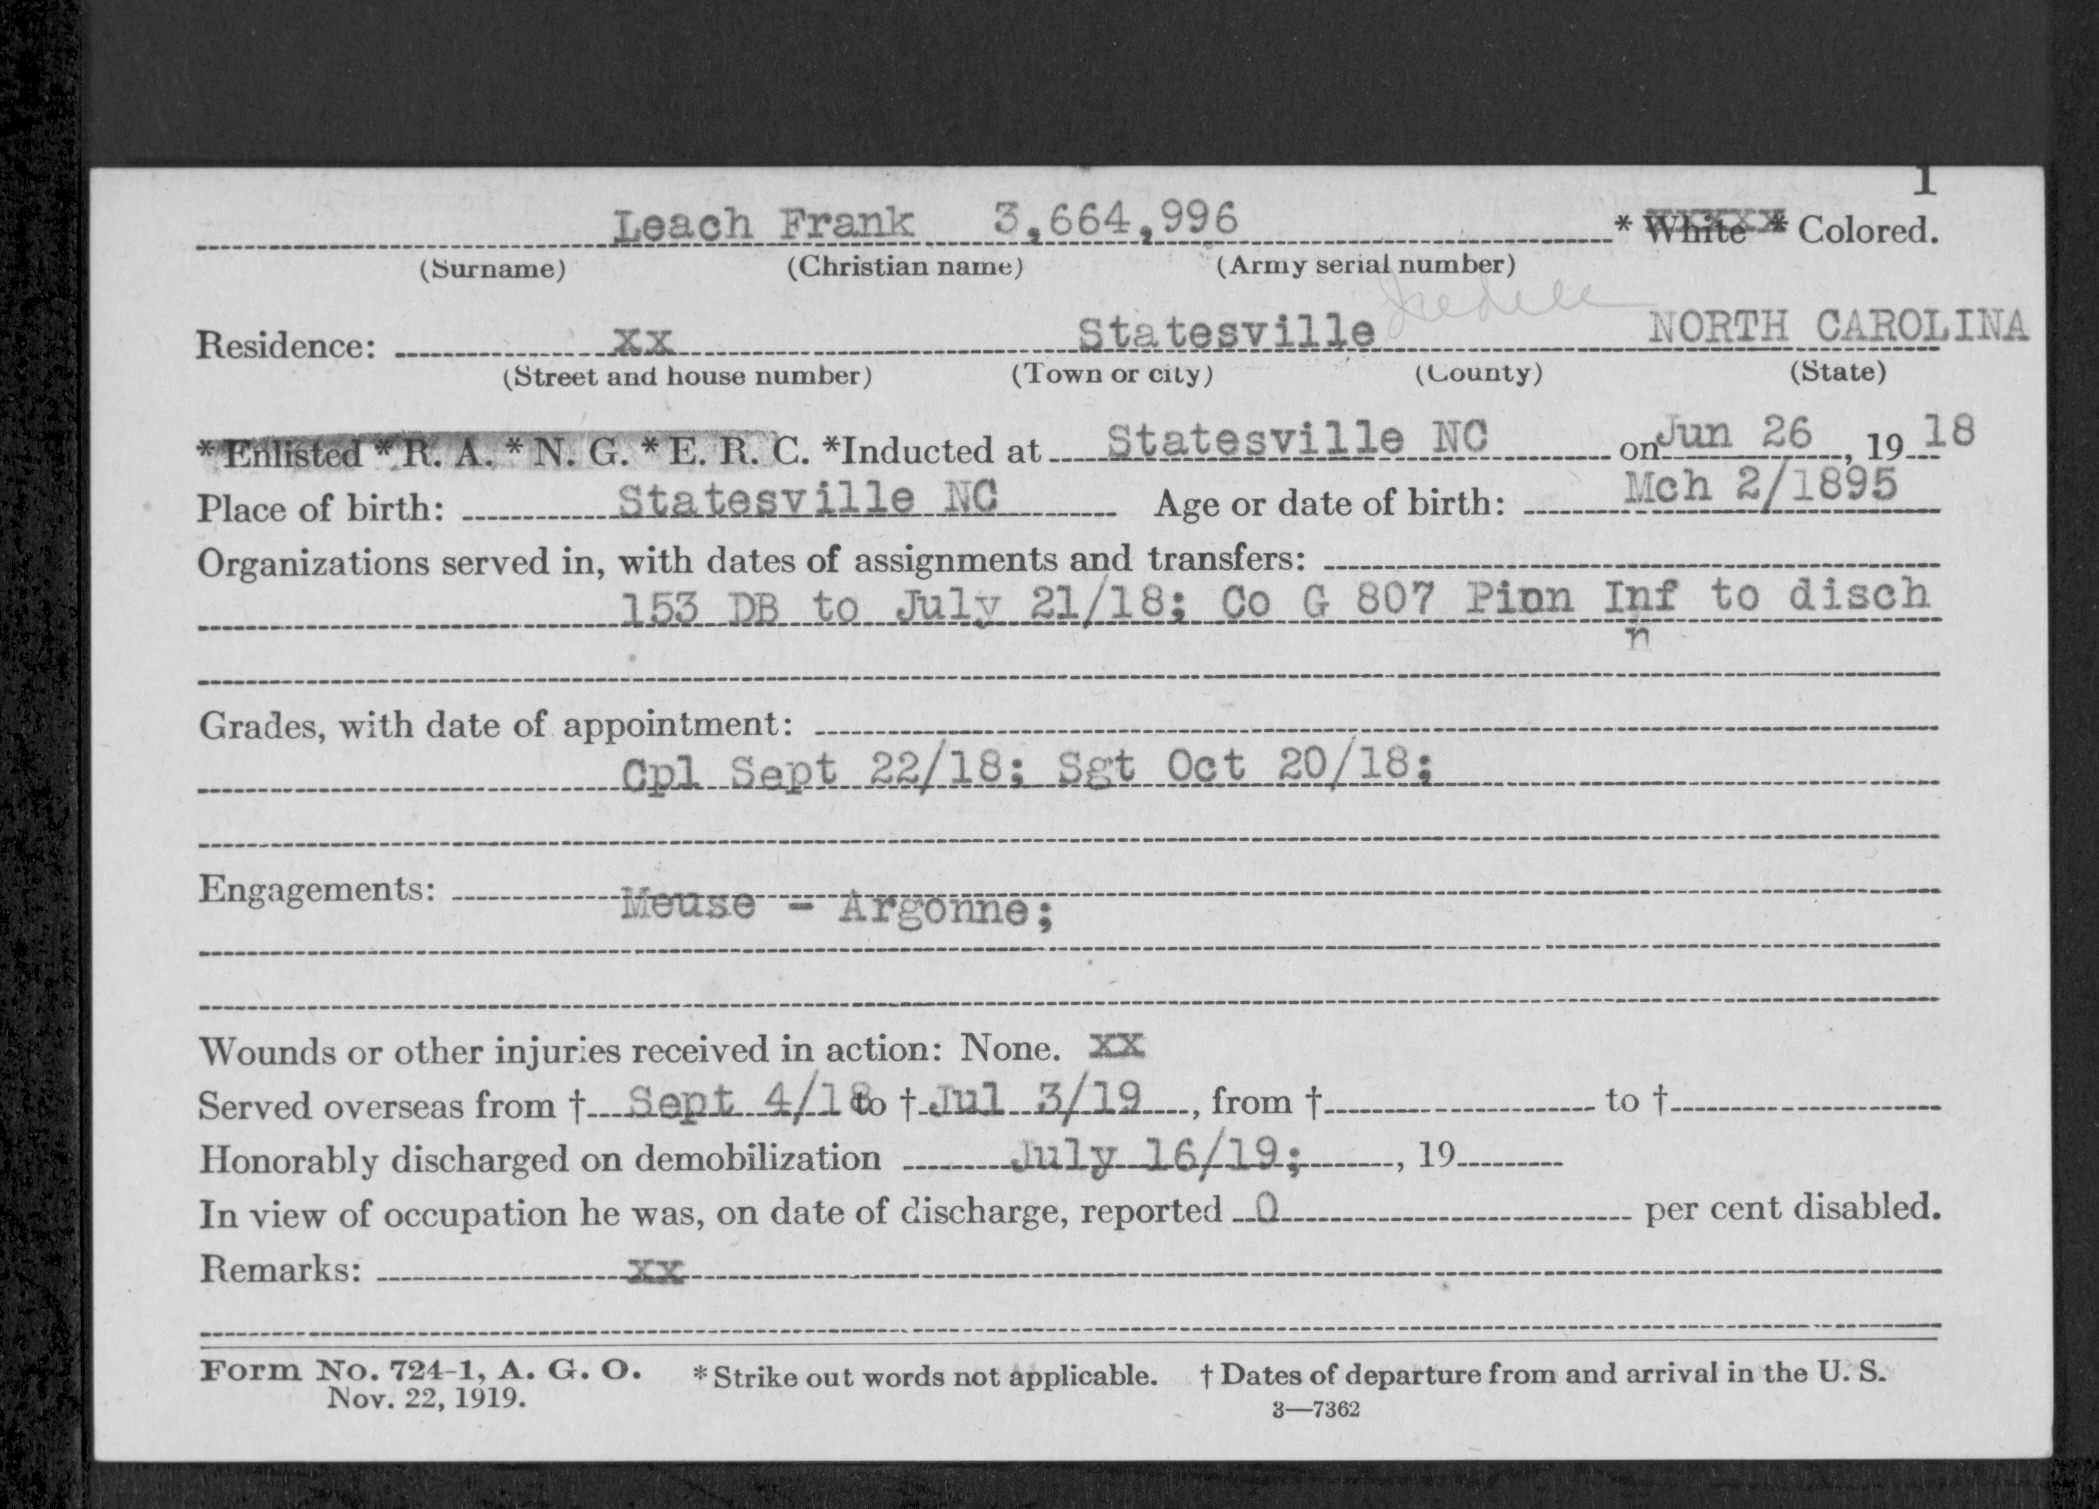 1
Leach Frank 3,664,996 * White * Colored.
(Surname) (Christian name) (Army serial number)
Residence: xx Statesville Iredell NORTH CAROLINA
(Street and house number) (Town or city) (County) (State)
*Enlisted *R. A. *N. G. *E. R. C. *Inducted at Statesville NC on Jun 26, 1918
Place of birth: Statesville NC Age or date of birth: Mch 2/1895
Organizations served in, with dates of assignments and transfers:
153 DB to July 21/18; Co G 807 Pinn Inf to disch
n
Grades, with date of appointment:
Cpl Sept 22/18; Sgt Oct 20/18;
Engagements:
Meuse - Argonne;
Wounds or other injuries received in action: None. xx
Served overseas from † Sept 4/18 to † Jul 3/19, from † to †
Honorably discharged on demobilization July 16/19;, 19
In view of occupation he was, on date of discharge, reported 0 per cent disabled.
Remarks: xx
Form No. 724-1, A. G. O. *Strike out words not applicable. † Dates of departure from and arrival in the U. S.
Nov. 22, 1919. 3—7362